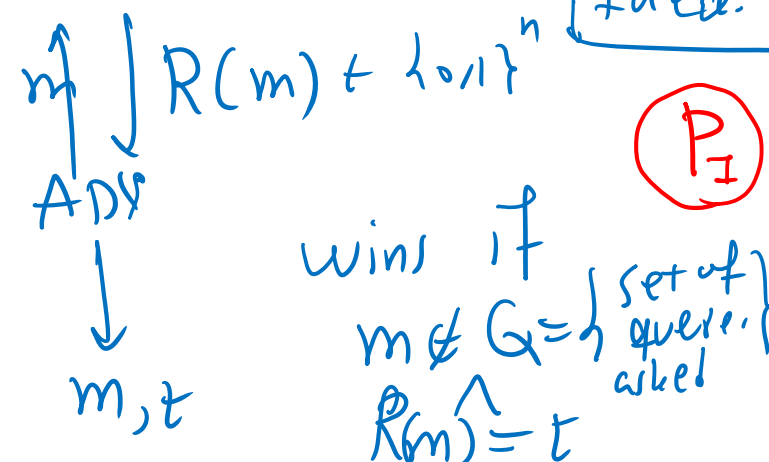 m R(m) ← {0,1}ⁿ
P_I
ADV
wins if
m ∉ Q = { set of
asked }
m, t
∧
R(m) = t